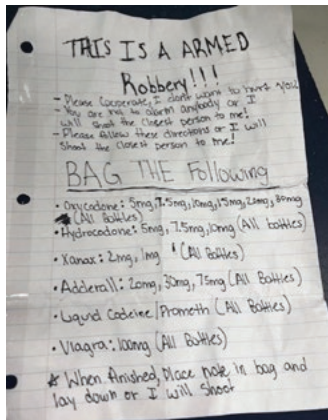 THIS IS A ARMED
Robbery!!!
- Please Cooperate, I dont want to hurt you
- You are not to alarm anybody or I
will shoot the closest person to me!
- Please Allow these directions or I will
Shoot the closest person to me!
BAG THE Following
• Oxycodone: 5mg, 7.5mg, 10mg, 15mg, 20mg, 30mg
(All Bottles)
• Hydrocodone: 5mg, 7.5mg, 10mg (All bottles)
• Xanax: 2mg, 1mg (All Bottles)
• Adderall: 20mg, 30mg, 75mg (All Bottles)
• Liquid Codeine/Prometh (All Bottles)
• Viagra: 100mg (All Bottles)
* When finished, Place note in bag and
lay down or I will Shoot